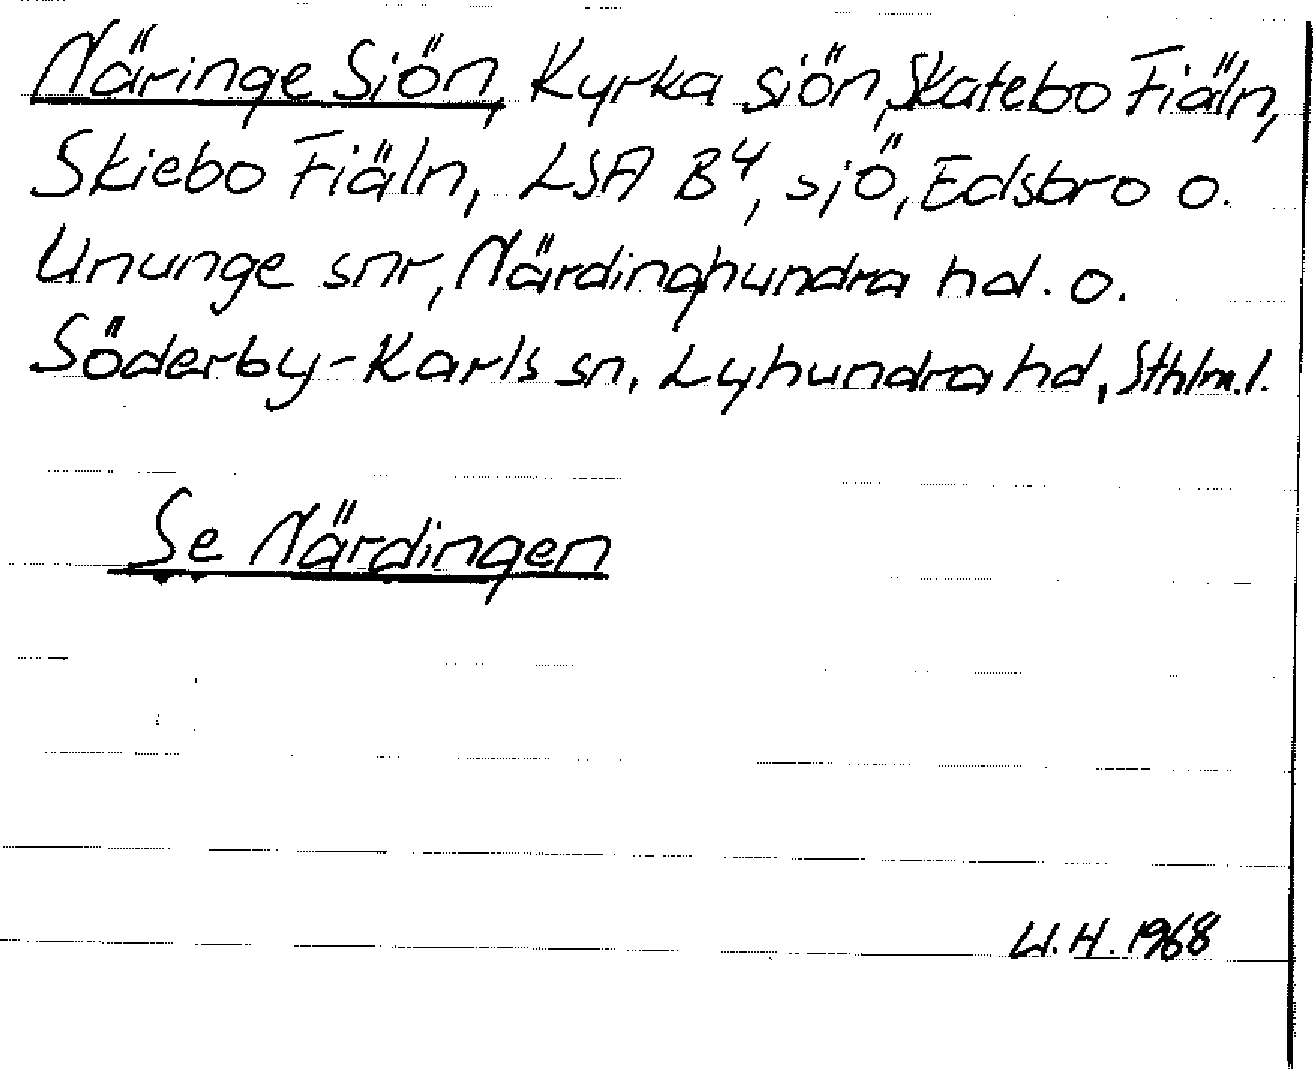 Näringe Siön, Kyrka siön, Skatebo Fiäln,
Skiebo Fiäln, LSA B4, sjö, Edsbro o.
Ununge snr, Närdinghundra hd. o.
Söderby-Karls sn, Lyhundra hd, Sthlm.l.
Se Närdingen
U.H. 1968